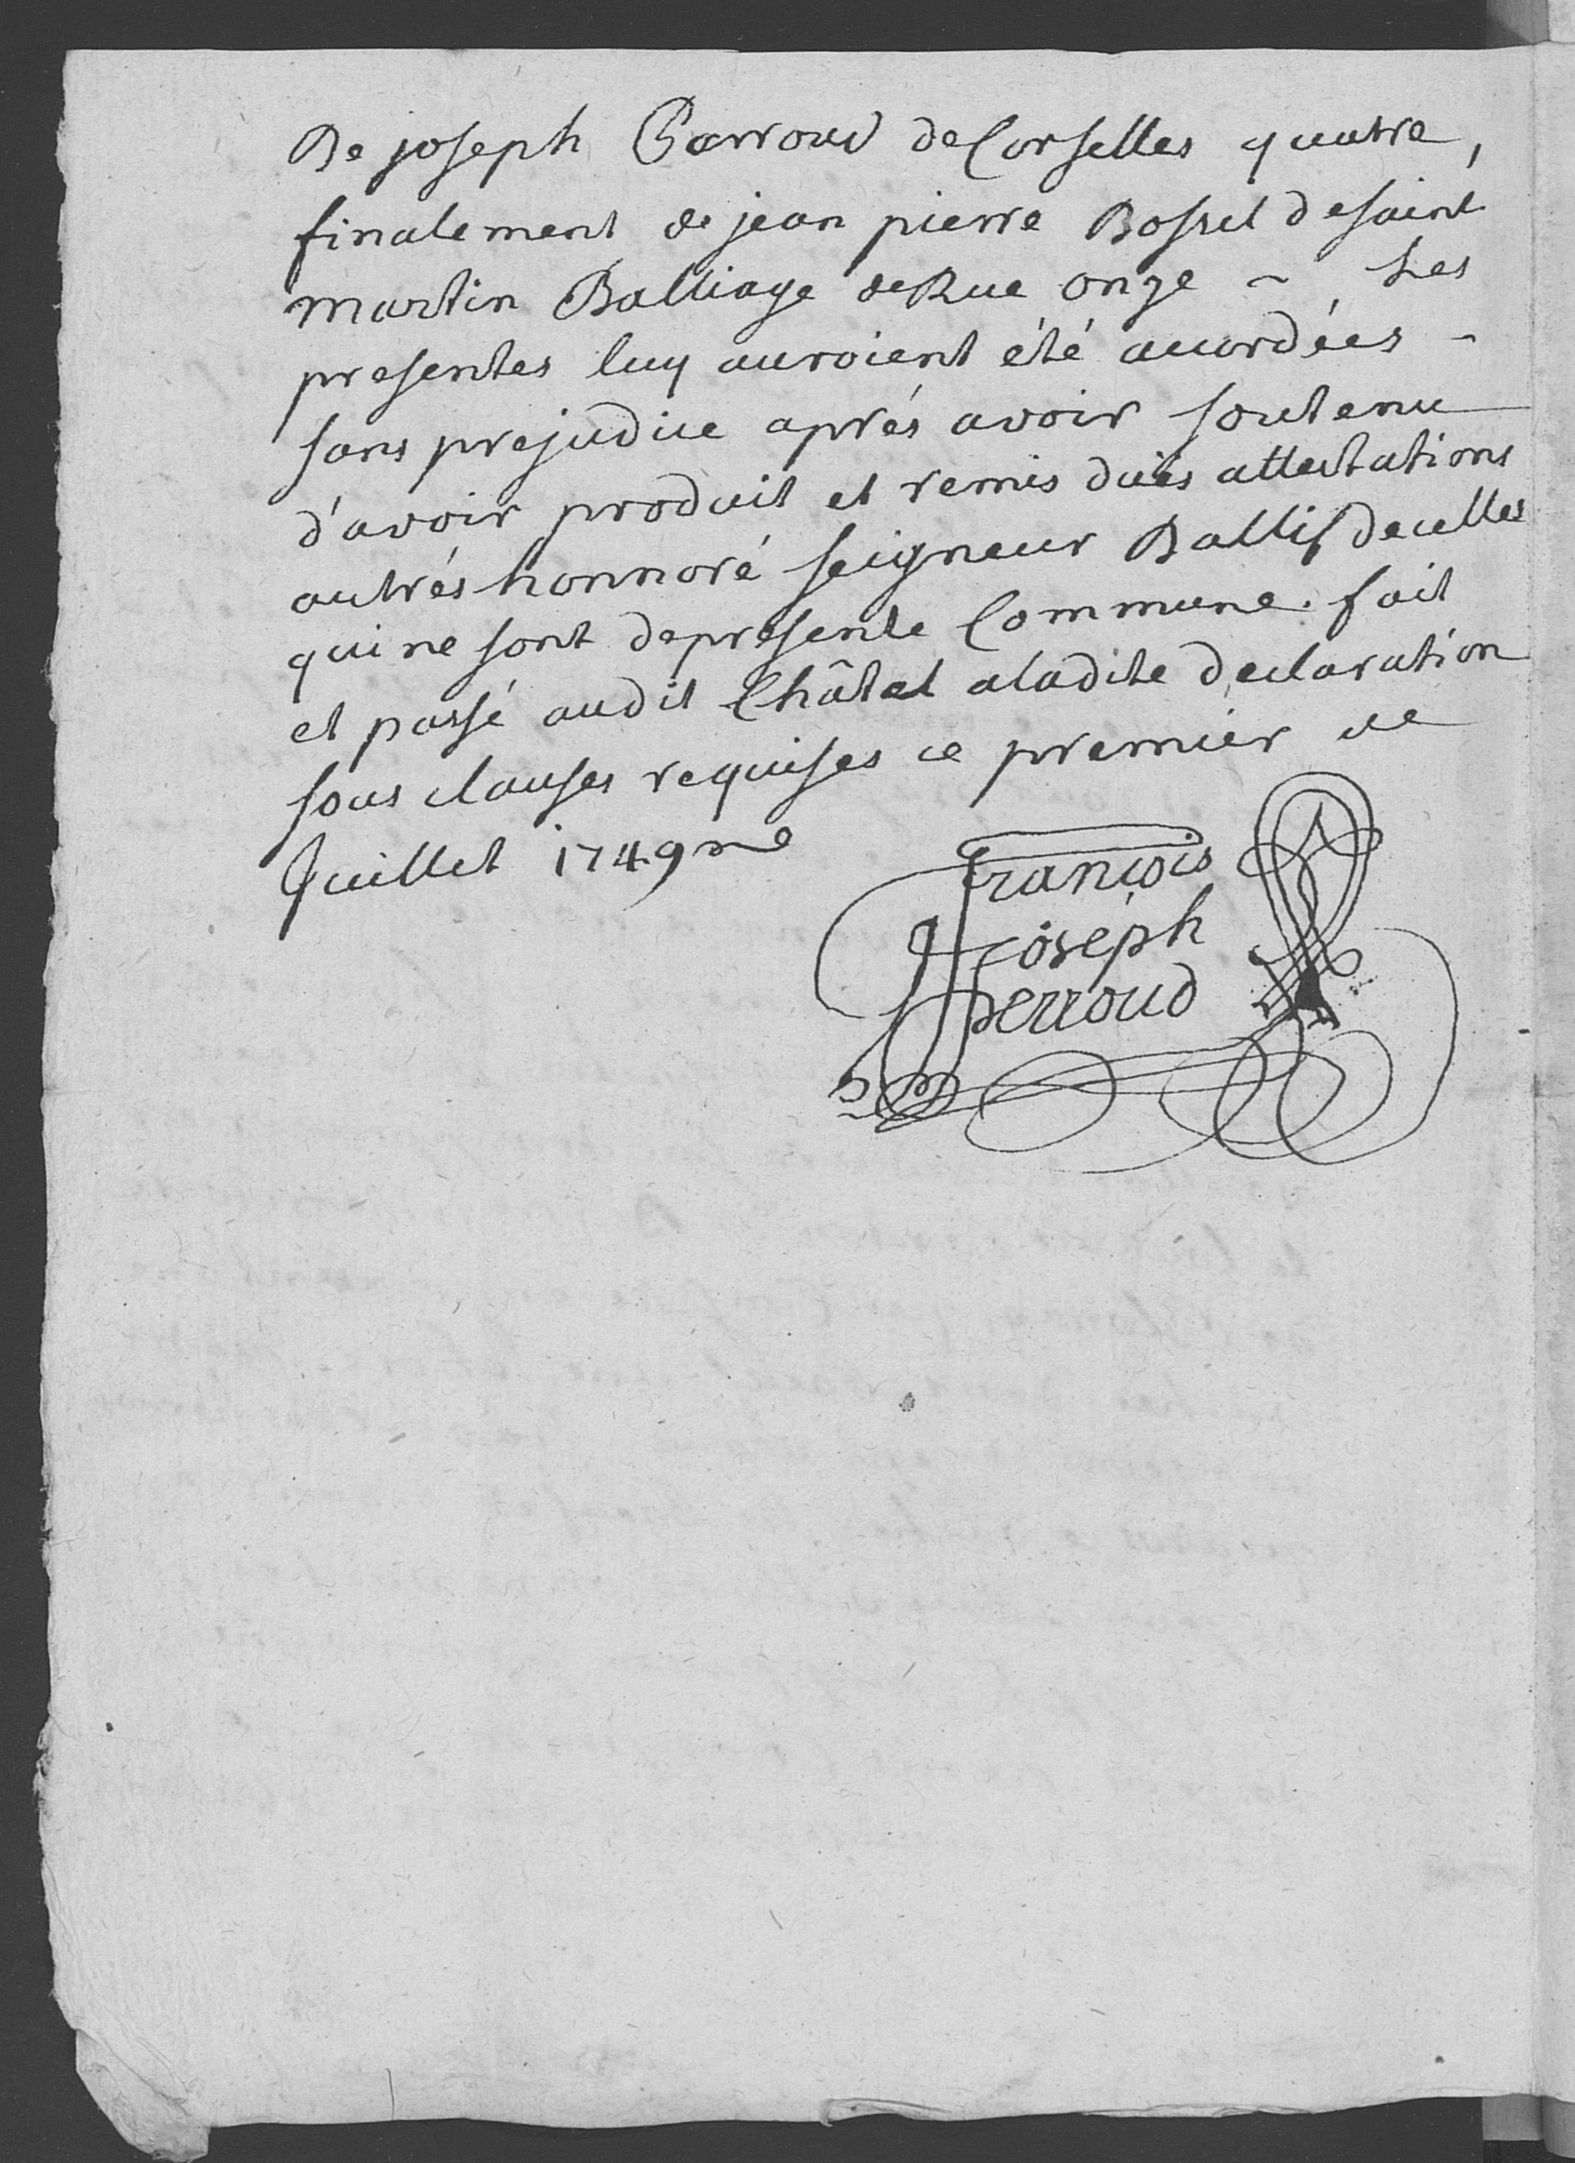 De joseph Garroud de Corselles quatre,
finalement de jean pierre Bossel de saint
martin Balliage de Rue onze ~ Les
presentes luy auroient été acordées -
sans prejudice aprés avoir soutenu
d'avoir produit et remis dües attestations
au trés honnoré seigneur Ballif de celles
qui ne sont de presente Commune. fait
et passé audit Châtel a ladite declaration
sous clauses requises ce premier de
Juillet 1749ne
François
Joseph
Perroud